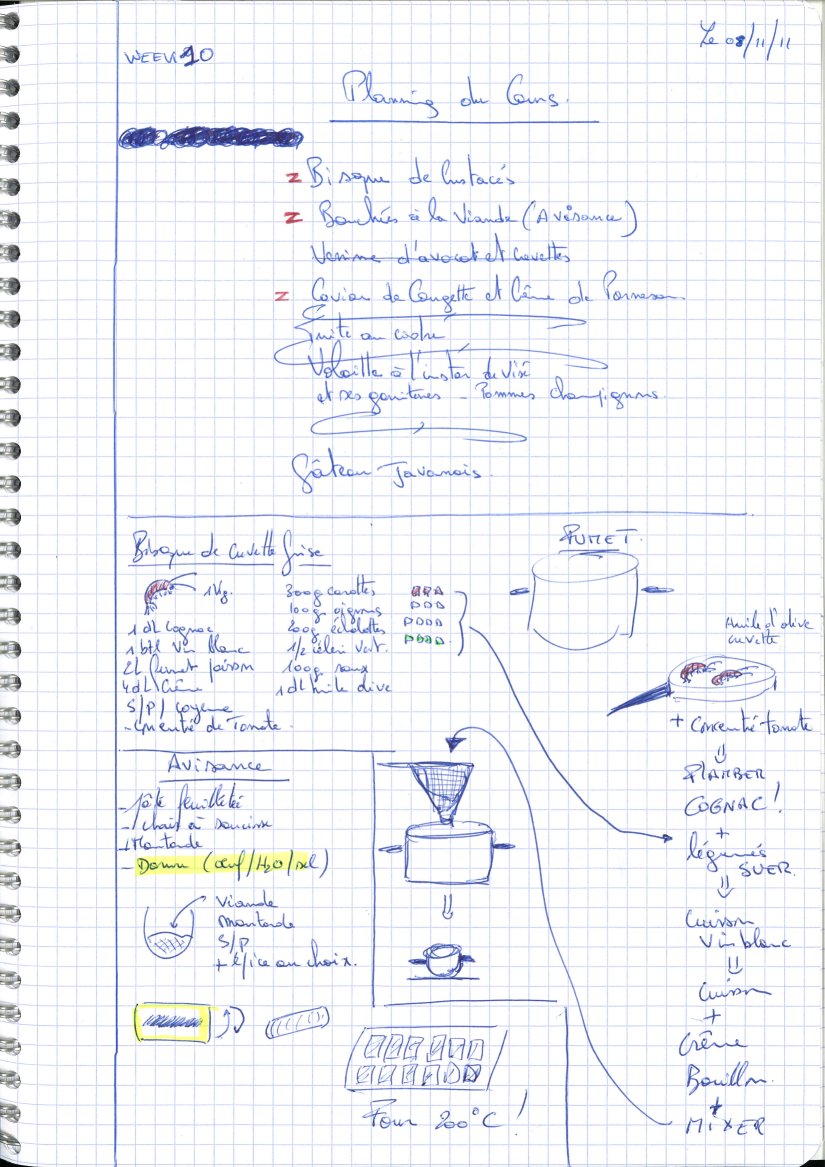 Le 08/11/11
WEEK 10
Planning du Cours.
Z Bisque de Crustacés
Z Bouchées à la Viande (Avisance)
Verrine d'avocat et crevettes
Z Caviar de Courgette et Crème de Parmesan
Truite au cidre
Volaille à l'instar de Visé
et ses garnitures - Pommes champignons.
Gâteau Javanais.
Bisque de crevette grise
1 Kg.
1 dL cognac
1 btl vin blanc
2L fumet poisson
4dL Crème
S/P/Cayenne
- Concentré de Tomate.
300g carottes
100g oignons
200g échalottes
1/2 céleri vert.
100g roux
1 dL huile olive
FUMET.
Huile d'olive
crevette
+ Concentré tomate
FLAMBER
COGNAC !
+
légumes
SUER.
Cuisson
Vin blanc
Cuisson
+
Crème
Bouillon.
+
MIXER
Avisance
- Pâte feuilletée
- chair à saucisse
- Moutarde
- Dorure (œuf/H2O/sel)
Viande
moutarde
S/P
+ épice au choix.
Four 200°C !